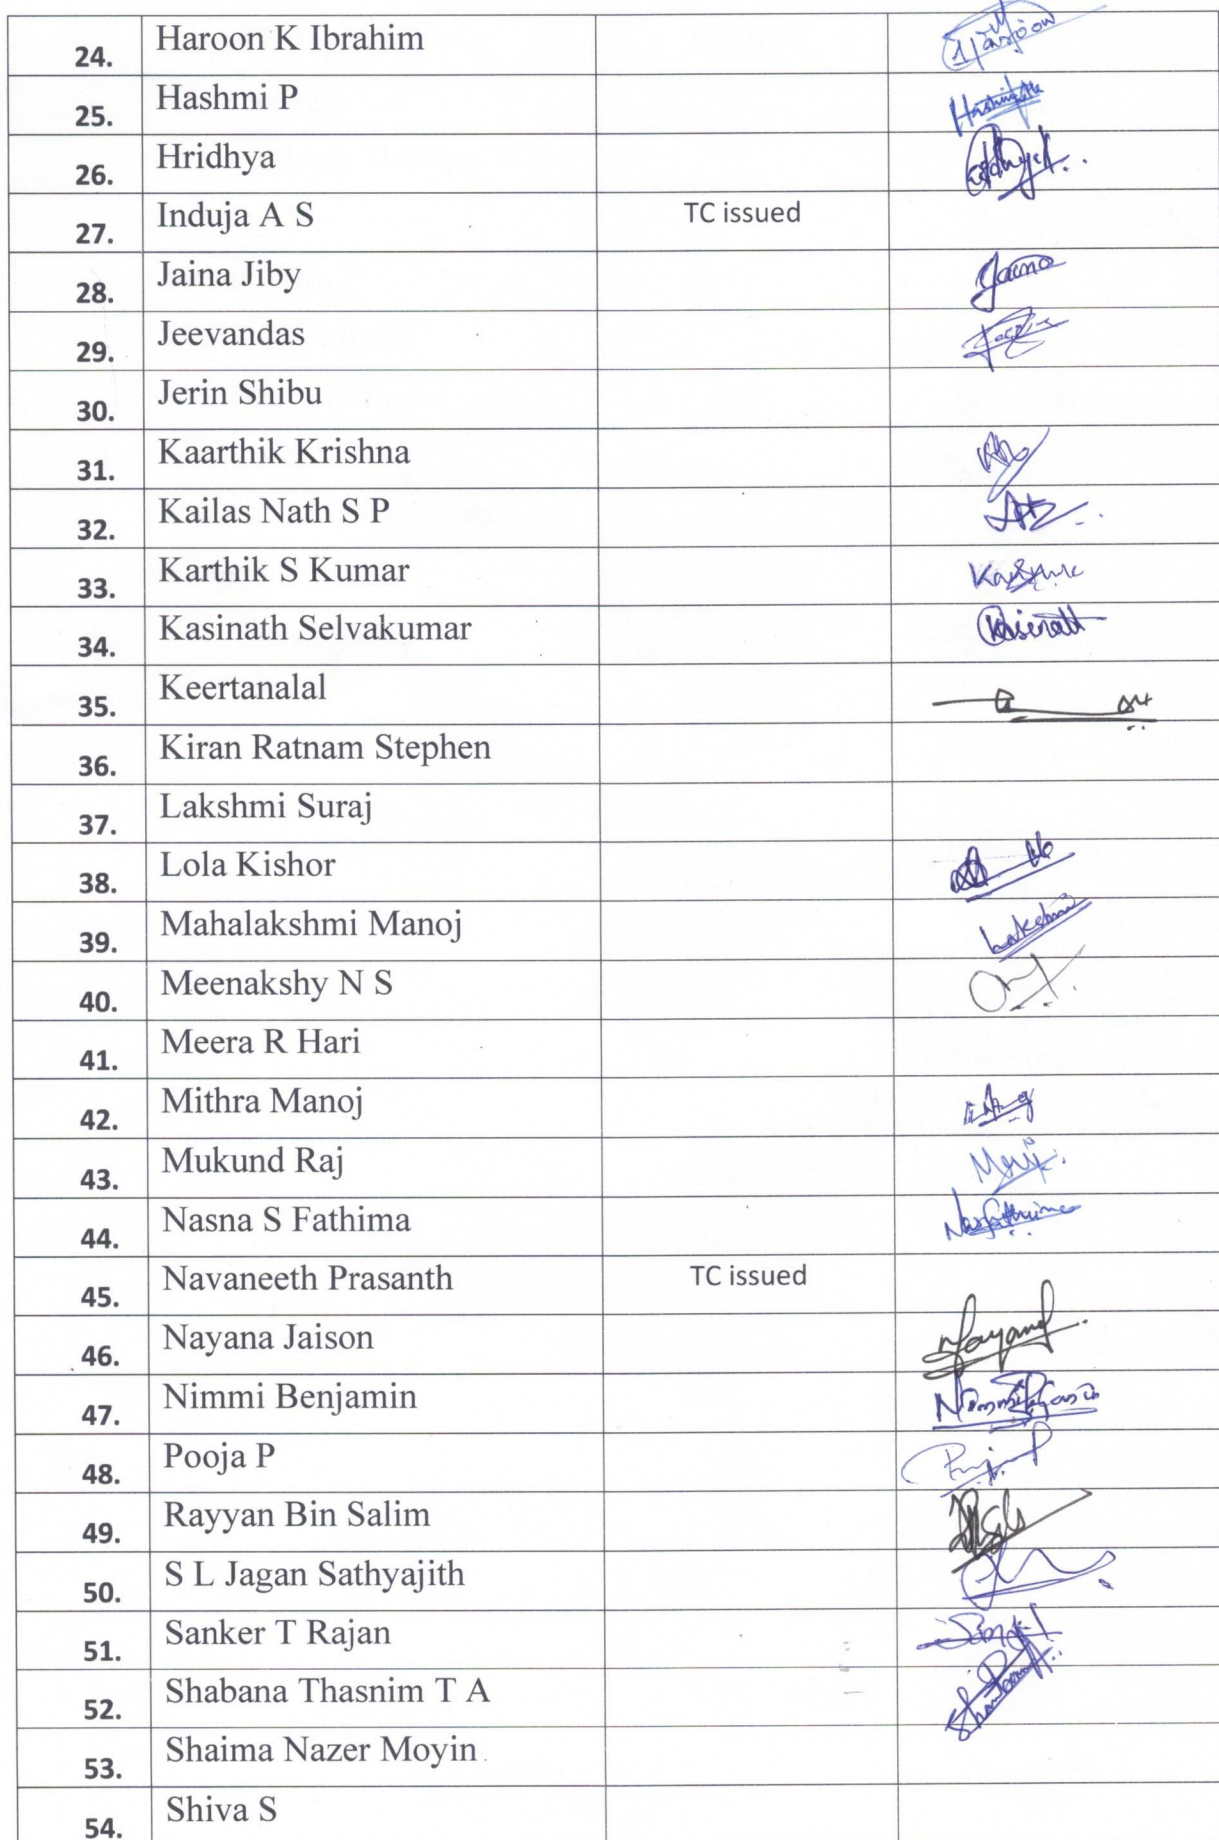 24. Haroon K Ibrahim
25. Hashmi P
26. Hridhya
27. Induja A S TC issued
28. Jaina Jiby Jaina
29. Jeevandas
30. Jerin Shibu
31. Kaarthik Krishna
32. Kailas Nath S P
33. Karthik S Kumar
34. Kasinath Selvakumar Kasinath
35. Keertanalal
36. Kiran Ratnam Stephen
37. Lakshmi Suraj
38. Lola Kishor
39. Mahalakshmi Manoj Lakshmi
40. Meenakshy N S
41. Meera R Hari
42. Mithra Manoj
43. Mukund Raj
44. Nasna S Fathima
45. Navaneeth Prasanth TC issued
46. Nayana Jaison Nayana
47. Nimmi Benjamin
48. Pooja P
49. Rayyan Bin Salim
50. S L Jagan Sathyajith
51. Sanker T Rajan
52. Shabana Thasnim T A
53. Shaima Nazer Moyin
54. Shiva S